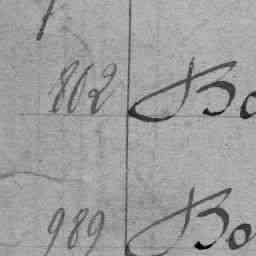 802 Bo
989 Bo